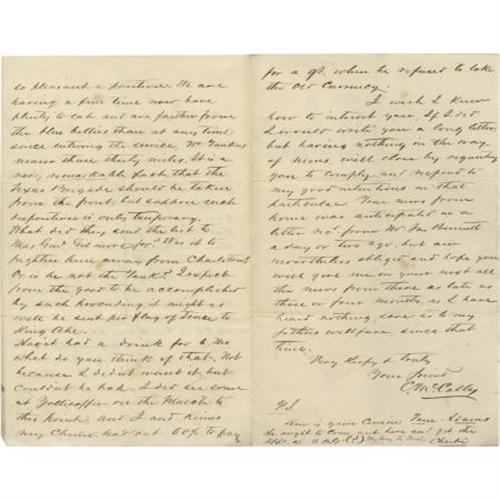 so pleasant a position. We are
having a fine time now have
plenty to eat and are farther from
the blue bellies than at any time
since entering the service, No Yankees
nearer than thirty miles. It is a
very remarkable fact, that the
Texas Brigade should be taken
from the front, but suppose such
disposition is only temporary.
What did they send the list to
Maj Genl Gilmore for? Was it to
frighten him away from Charleston?
Or is he not the Yank? I expect
from the good to be accomplished
by such proceeding it might as
well be sent per flag of truce to
King
Hav'nt had a drink for 6 Mo
what do you think of that. Not
because I didn't want it, but
couldn't be had. I did see some
at Zollicoffer on the March to
this point and I and
my Chums had out 60$ to pay
for a qt. when he refused to take
the Old Currency.
I wish I knew
how to interest you. If I did
I would write you a long letter,
but having nothing in the way
of news, will close by requesting
you to comply and respond to
my good intentions in that
particular. Your news from
home was anticipated in a
letter rec'd from Mr. Jas Bennett
a day or two ago, but am
nevertheless obliged and hope you
will give me in your next all
the news from those as late as
three or four months, as I have
heard nothing, save as to my
father's welfare, since that
time.
Very Respy & truly
Your friend
C. McCally
P.S
How is your Cousin Adams
he ought to come out here and get the
Charlie